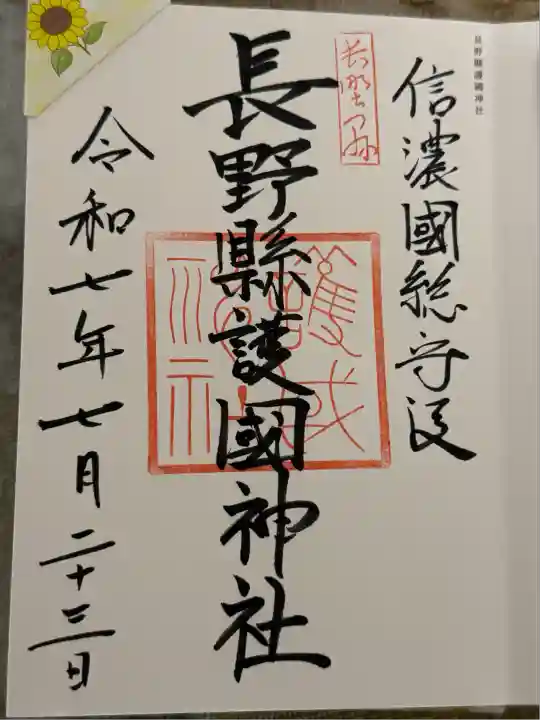 長野縣護國神社
信濃國総守護
長野縣護國神社
令和七年七月二十三日